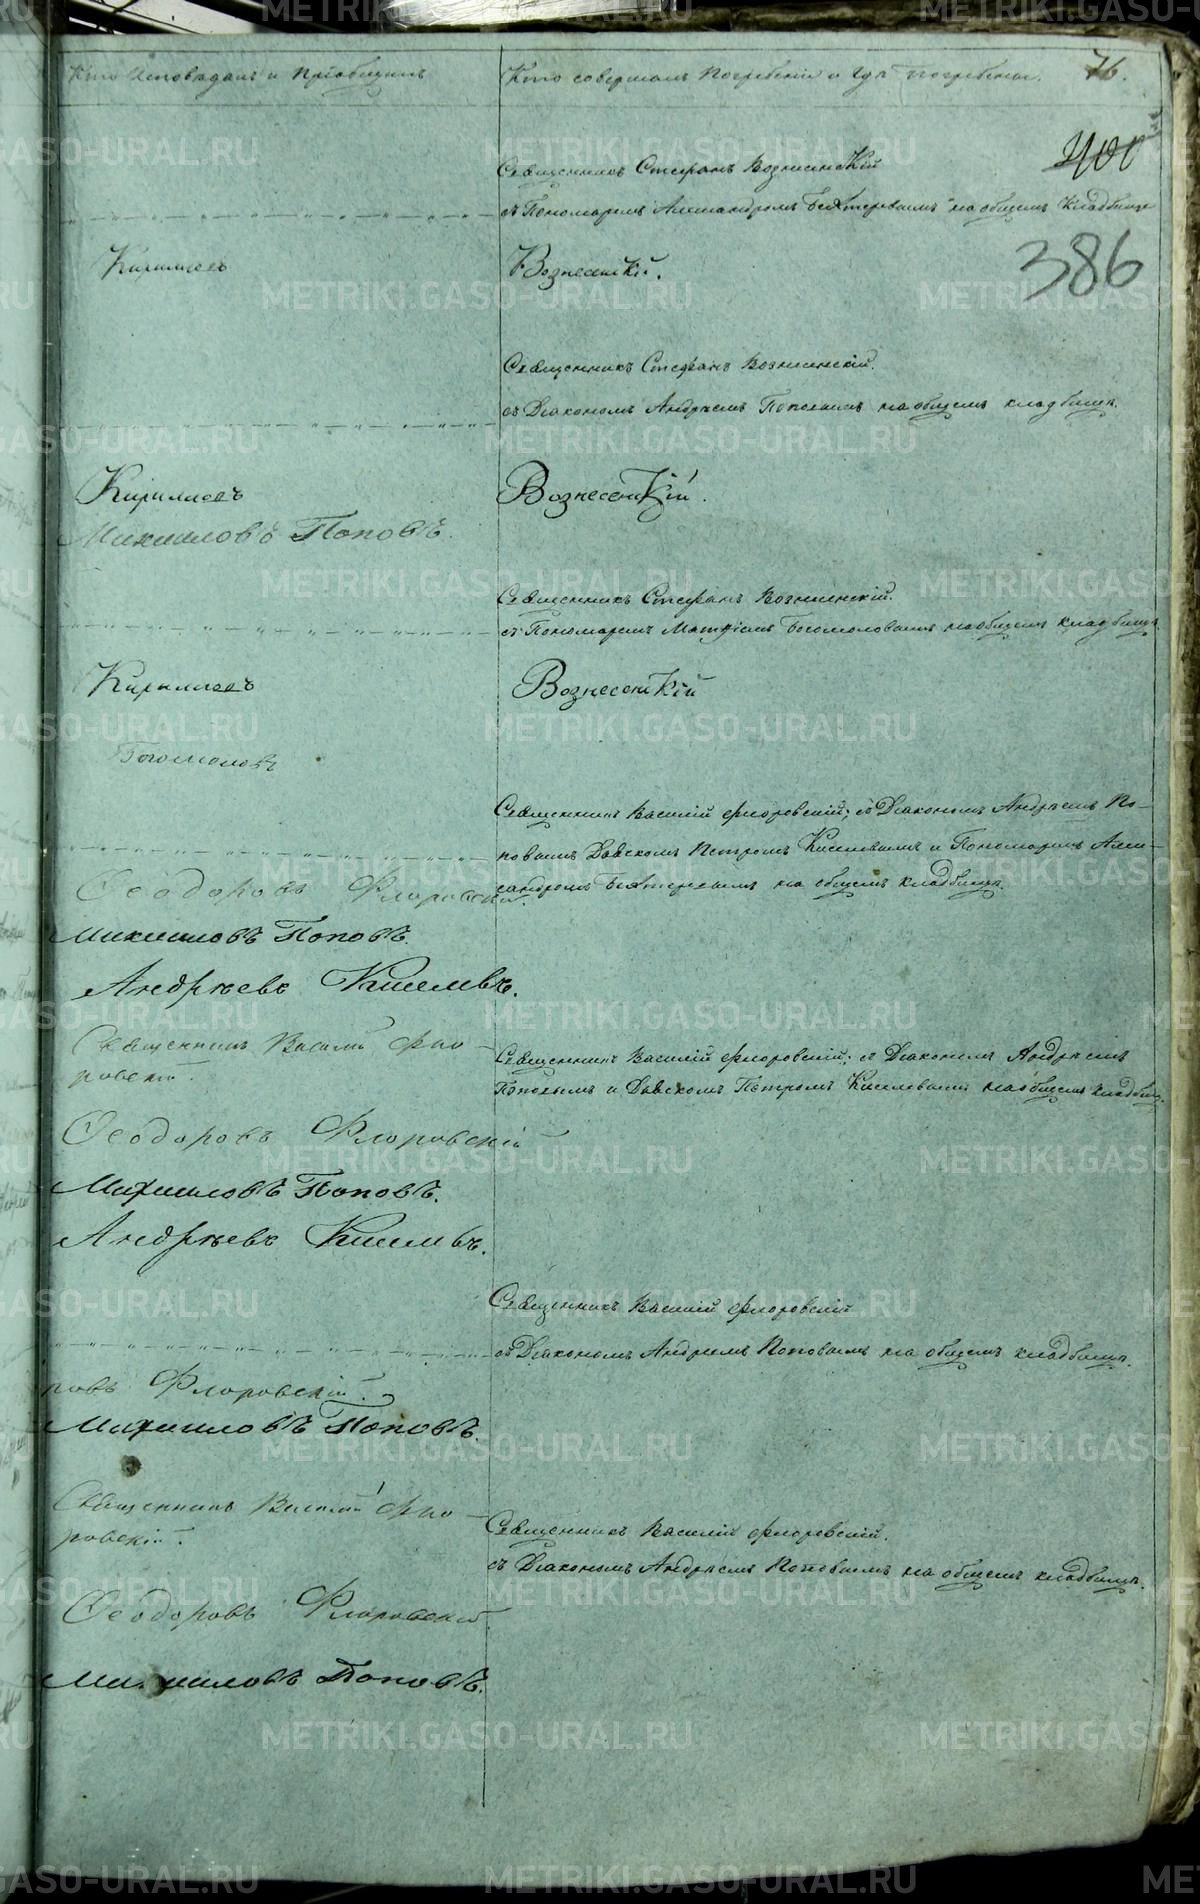 Кто исповѣдалъ и приобщилъ
Кто совершалъ погребеніе и гдѣ погребены.
76.
400
386
Священникъ Стефанъ Вознесенскій
съ Пономаремъ Александромъ Бехтеревымъ на общемъ кладбище
Кириловъ
Вознесенскій.
Священникъ Стефанъ Вознесенскій.
съ Діакономъ Андреемъ Поповымъ на общемъ кладбищѣ.
Кириловъ
Вознесенскій.
Михаиловъ Поповъ.
Священникъ Стефанъ Вознесенскій.
съ Пономаремъ Матфіемъ Богомоловымъ на общемъ кладбищѣ.
Кириловъ
Вознесенскій
Богомоловъ
Священникъ Василій Флоровскій; съ Діакономъ Андреемъ По-
повымъ Дьячкомъ Петромъ Киселевымъ и Пономаремъ Алек-
сандромъ Бехтеревымъ на общемъ кладбищѣ.
Ѳеодоровъ Флоровскій.
Михаиловъ Поповъ.
Андреевъ Киселевъ.
Священникъ Василій Фло-
ровскій.
Священникъ Василій Флоровскій; съ Діакономъ Андреемъ
Поповымъ и Дьячкомъ Петромъ Киселевымъ на общемъ кладбищ.
Ѳеодоровъ Флоровскій
Михаиловъ Поповъ.
Андреевъ Киселевъ.
Священникъ Василій Флоровскій
съ Діакономъ Андреемъ Поповымъ на общемъ кладбищѣ.
ровъ Флоровскій.
Михаиловъ Поповъ.
Священникъ Василій Фло-
ровскій.
Священникъ Василій Флоровскій.
съ Діакономъ Андреемъ Поповымъ на общемъ кладбищѣ.
Ѳеодоровъ Флоровскій
Михаиловъ Поповъ.
METRIKI.GASO-URAL.RU